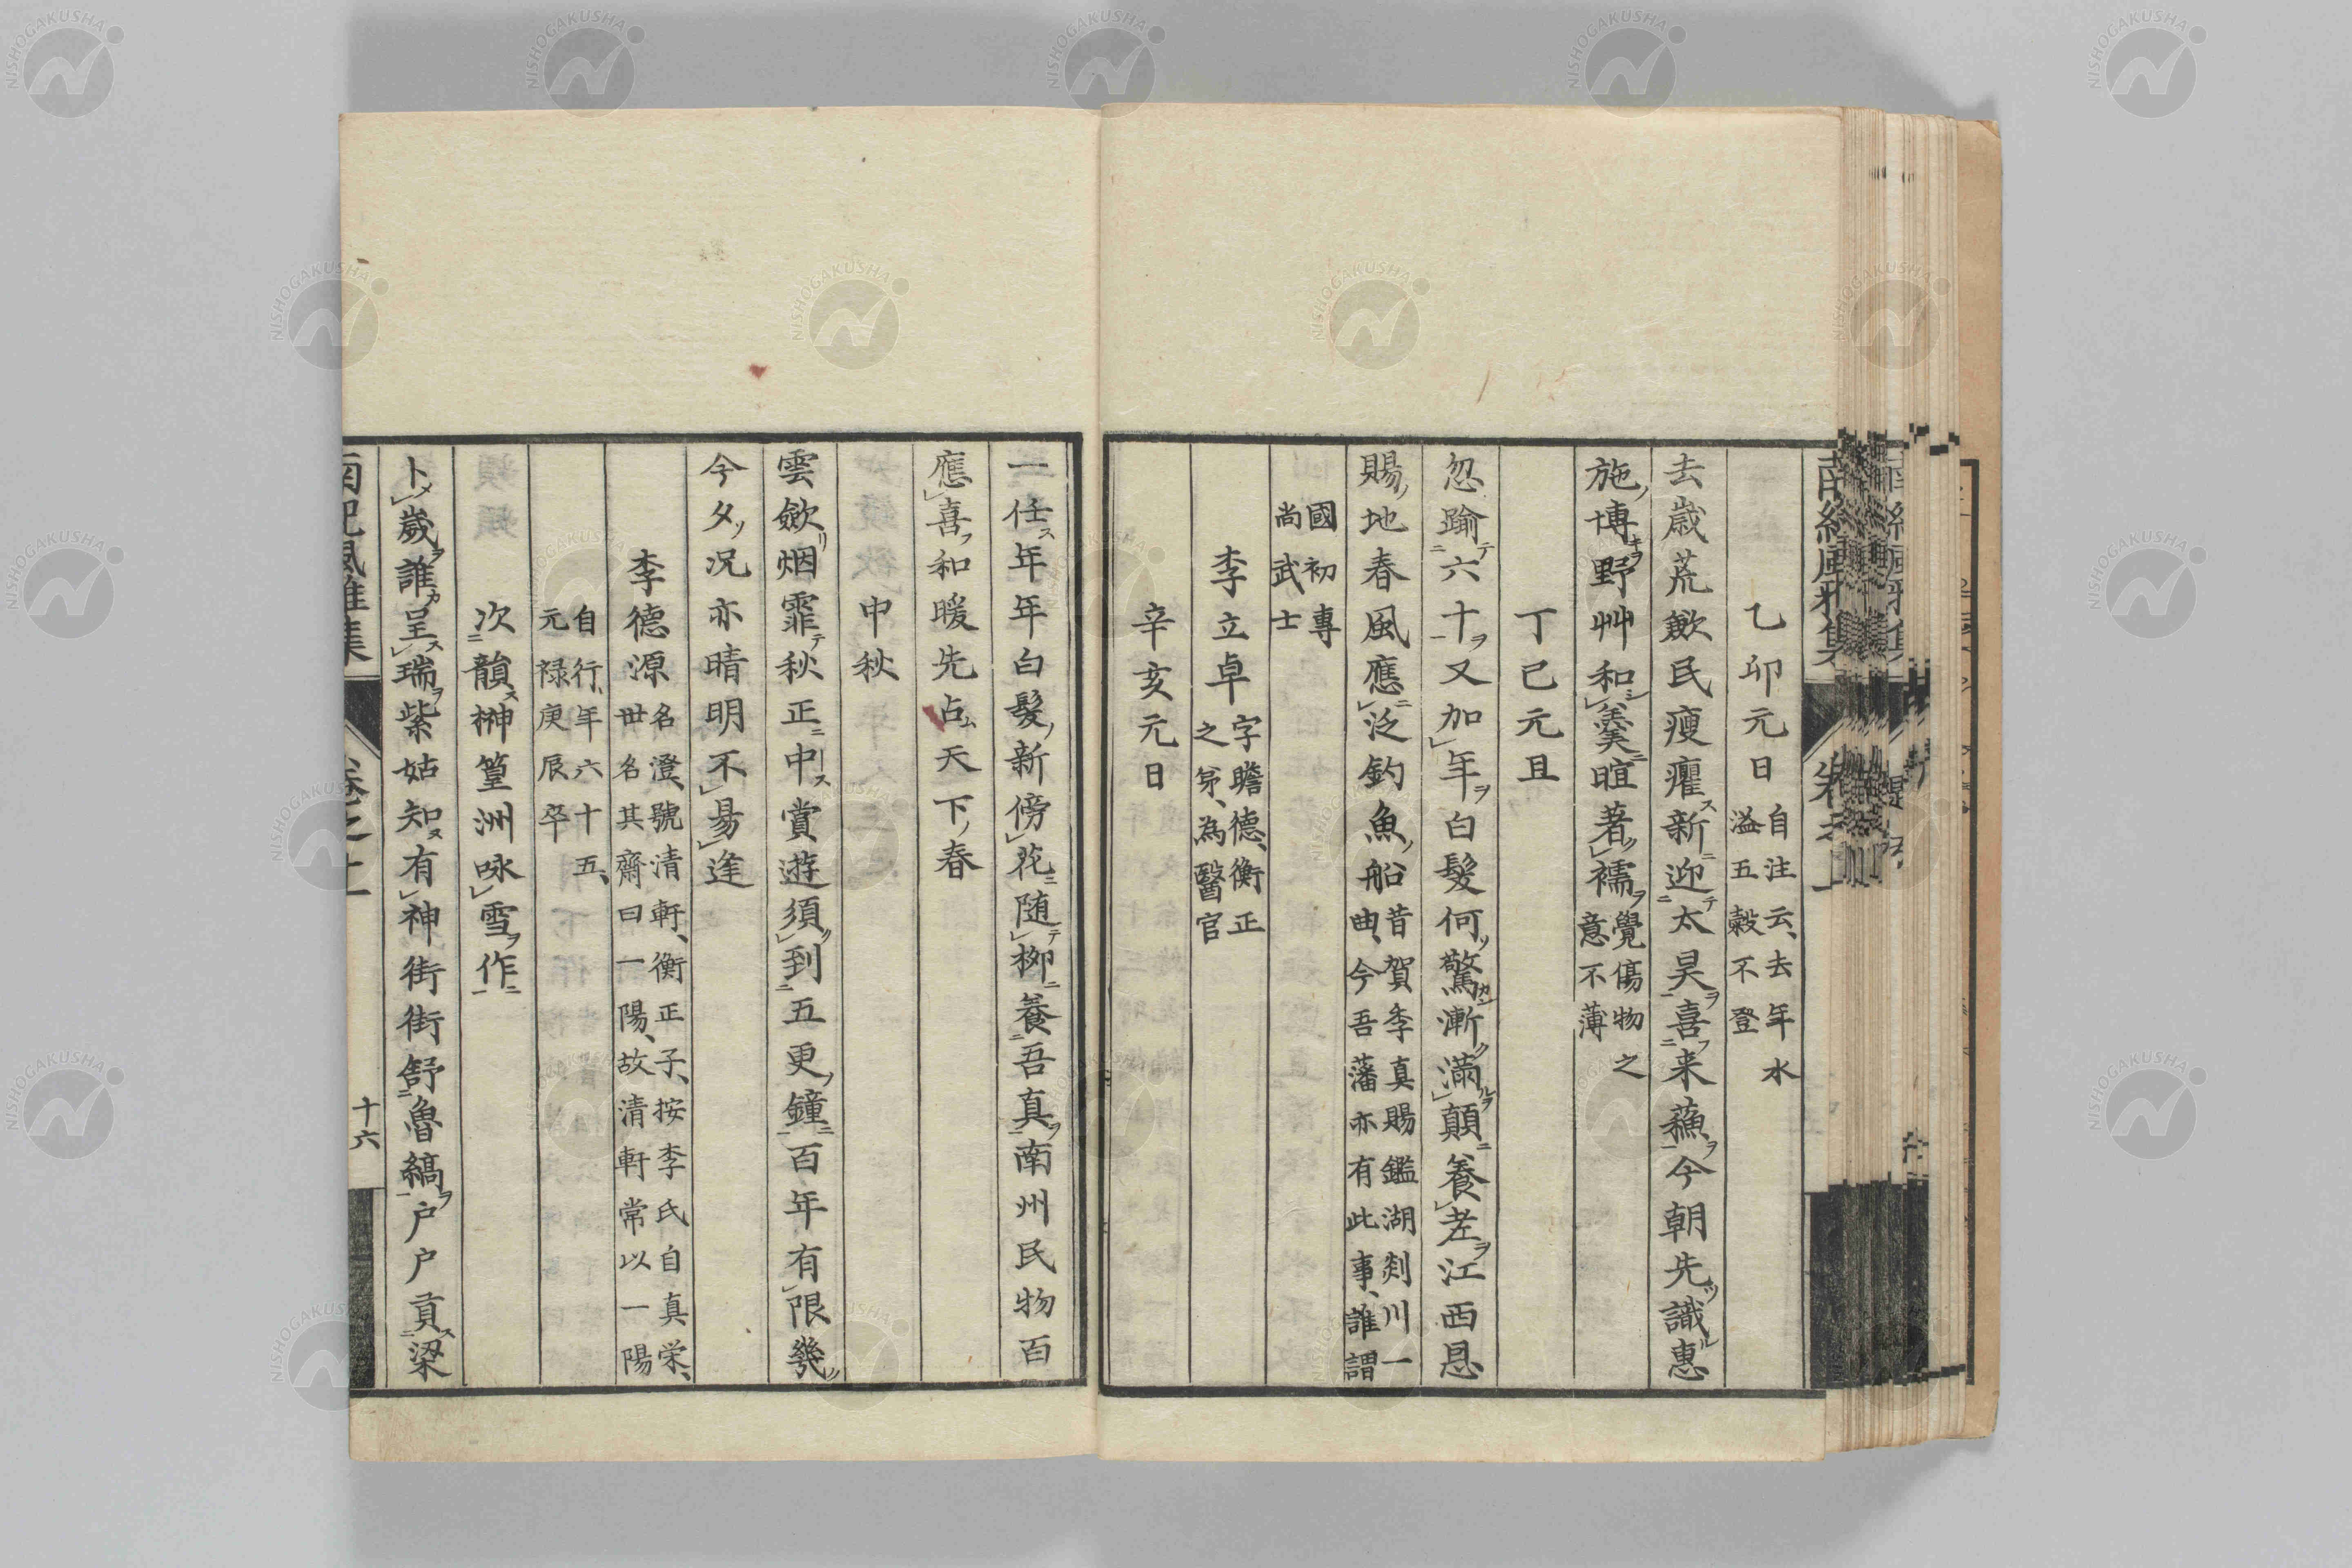 乙卯元日 自注云、去年水溢五穀不登
去歳荒歉民痩癯新迎太昊喜来蘓今朝先識惠
施博野艸和羹暄著襦 覺傷物之意不薄
丁巳元且
忽踰六十又加年白髮何驚漸滿顛養老江西恩
賜地春風應泛釣魚船 昔賀季真賜鑑湖剡川一曲、今吾藩亦有此事、誰謂
國初專尚武士
李立卓 字瞻德、衡正之第、為醫官
辛亥元日
一任年年白髮新傍花随柳養吾真南州民物百
應喜和暖先占天下春
中秋
雲歛烟霏秋正中賞遊須到五更鐘百年有限幾
今夕況亦晴明不易逢
李德源 名澄、號清軒、衡正子、按李氏自真栄、世名其齋曰一陽、故清軒常以一陽
自行、年六十五、元禄庚辰卒
次韻榊篁洲咏雪作
卜歲誰呈瑞紫姑知有神街街舒魯縞户户貢梁
南紀風雅集 卷之上 十六